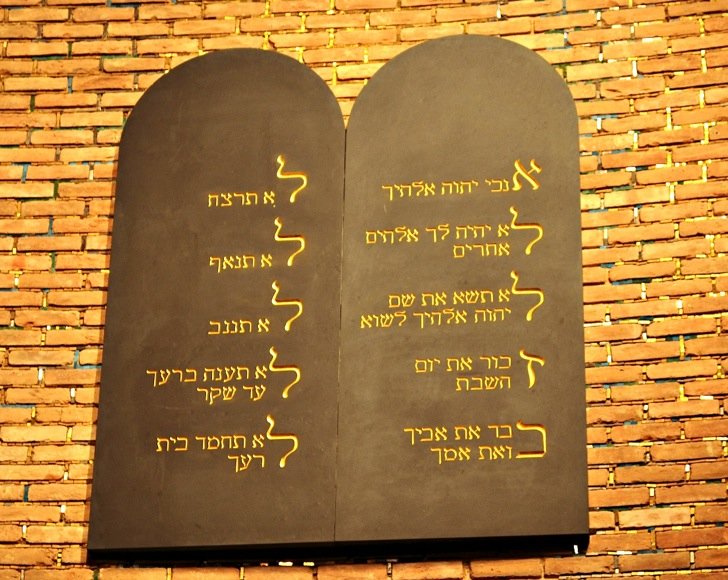 אנכי יהוה אלהיך
לא יהיה לך אלהים
אחרים
לא תשא את שם
יהוה אלהיך לשוא
זכור את יום
השבת
כבד את אביך
ואת אמך
לא תרצח
לא תנאף
לא תגנב
לא תענה ברעך
עד שקר
לא תחמד בית
רעך